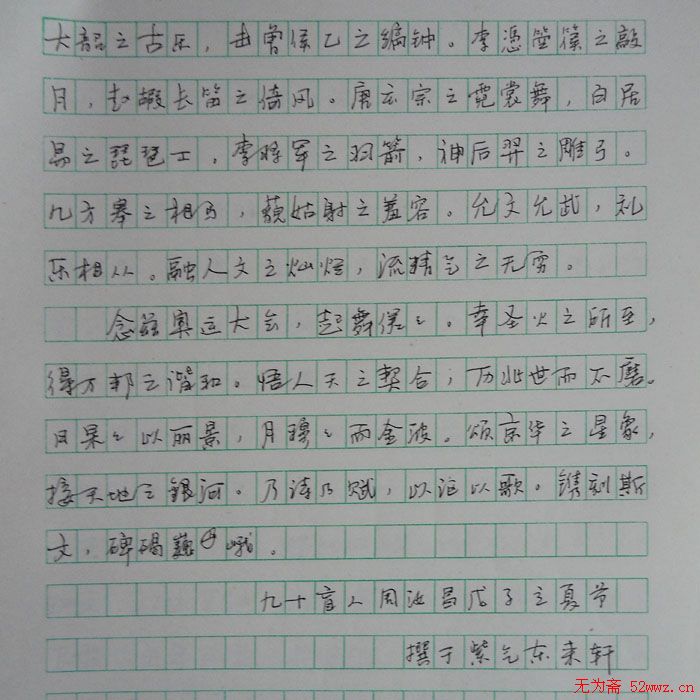 大韶之古乐，曲曾侯乙之编钟。李凭箜篌之敲
月，赵嘏长笛之倚风。唐玄宗之霓裳舞，白居
易之琵琶士，李将军之羽箭，神后羿之雕弓。
九方皋之相马，藐姑射之羞容。允文允武，礼
乐相从。融人文之灿烂，流精气之无穷。
念兹奥运大会，起舞傞々。幸圣火之所至，
得万邦之谐和。悟人天之契合；历此世而不磨。
日杲々以丽景，月穆々而金波。颂京华之星象，
接天地之银河。乃诗乃赋，以咏以歌。镌刻斯
文，碑碣巍峨。
九十盲人周汝昌戊子之夏节
撰于紫气东来轩
无为斋 52wwz.cn